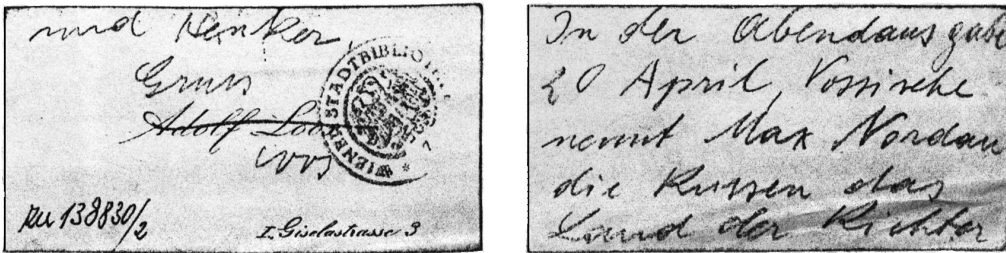 und Henker
Gruss
Adolf Loos
Loos
WIENER STADTBIBLIOTHEK
zu 138830/2
I. Giselastrasse 3
In der Abendausgabe
20 April, Vossische
nennt Max Nordau
die Russen das
Land der Richter